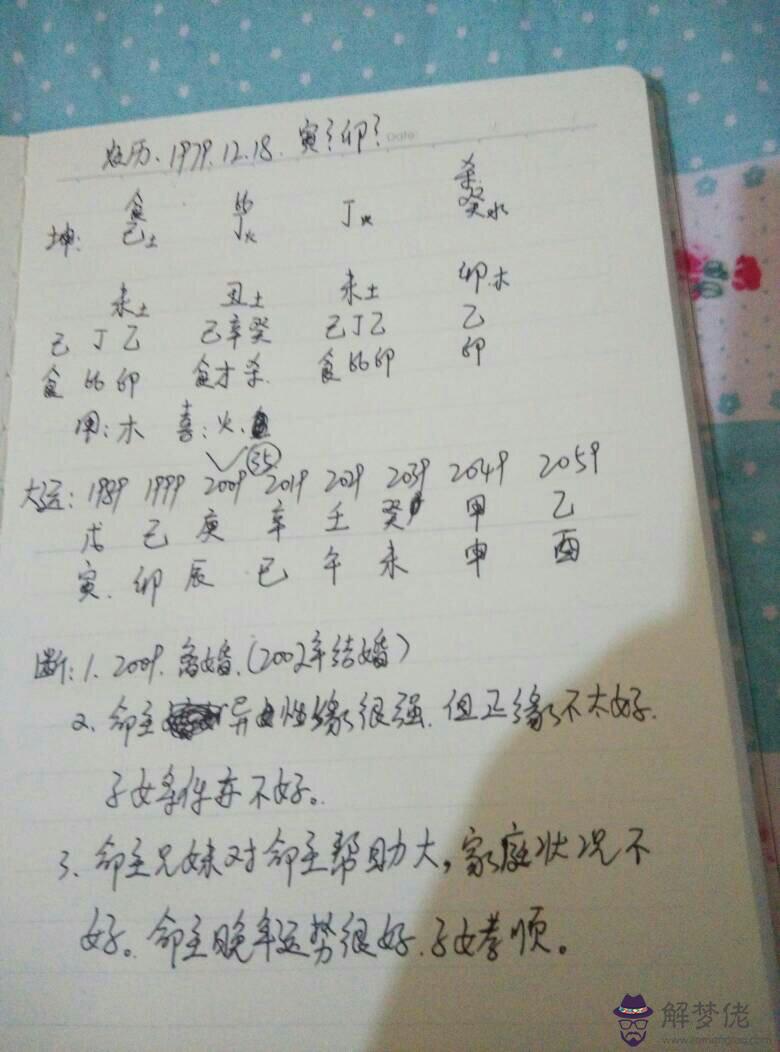 农历、1979.12.18. 寅?卯?
Date
食 比 杀
坤: 己土 丁火 丁火 癸水
未土 丑土 未土 卯木
己丁乙 己辛癸 己丁乙 乙
食比卯 食才杀. 食比卯 卯
用:木 喜:火.
35
大运: 1989 1999 2009 2019 2029 2039 2049 2059
戊 己 庚 辛 壬 癸 甲 乙
寅. 卯 辰 巳 午 未 申 酉
断: 1. 2009. 离婚.(2002年结婚)
2. 命主 异性缘很强. 但正缘不太好.
子女条件亦不好。
3. 命主兄妹对命主帮助大,家庭状况不
好。命主晚年运势很好.子女孝顺。
解梦佬